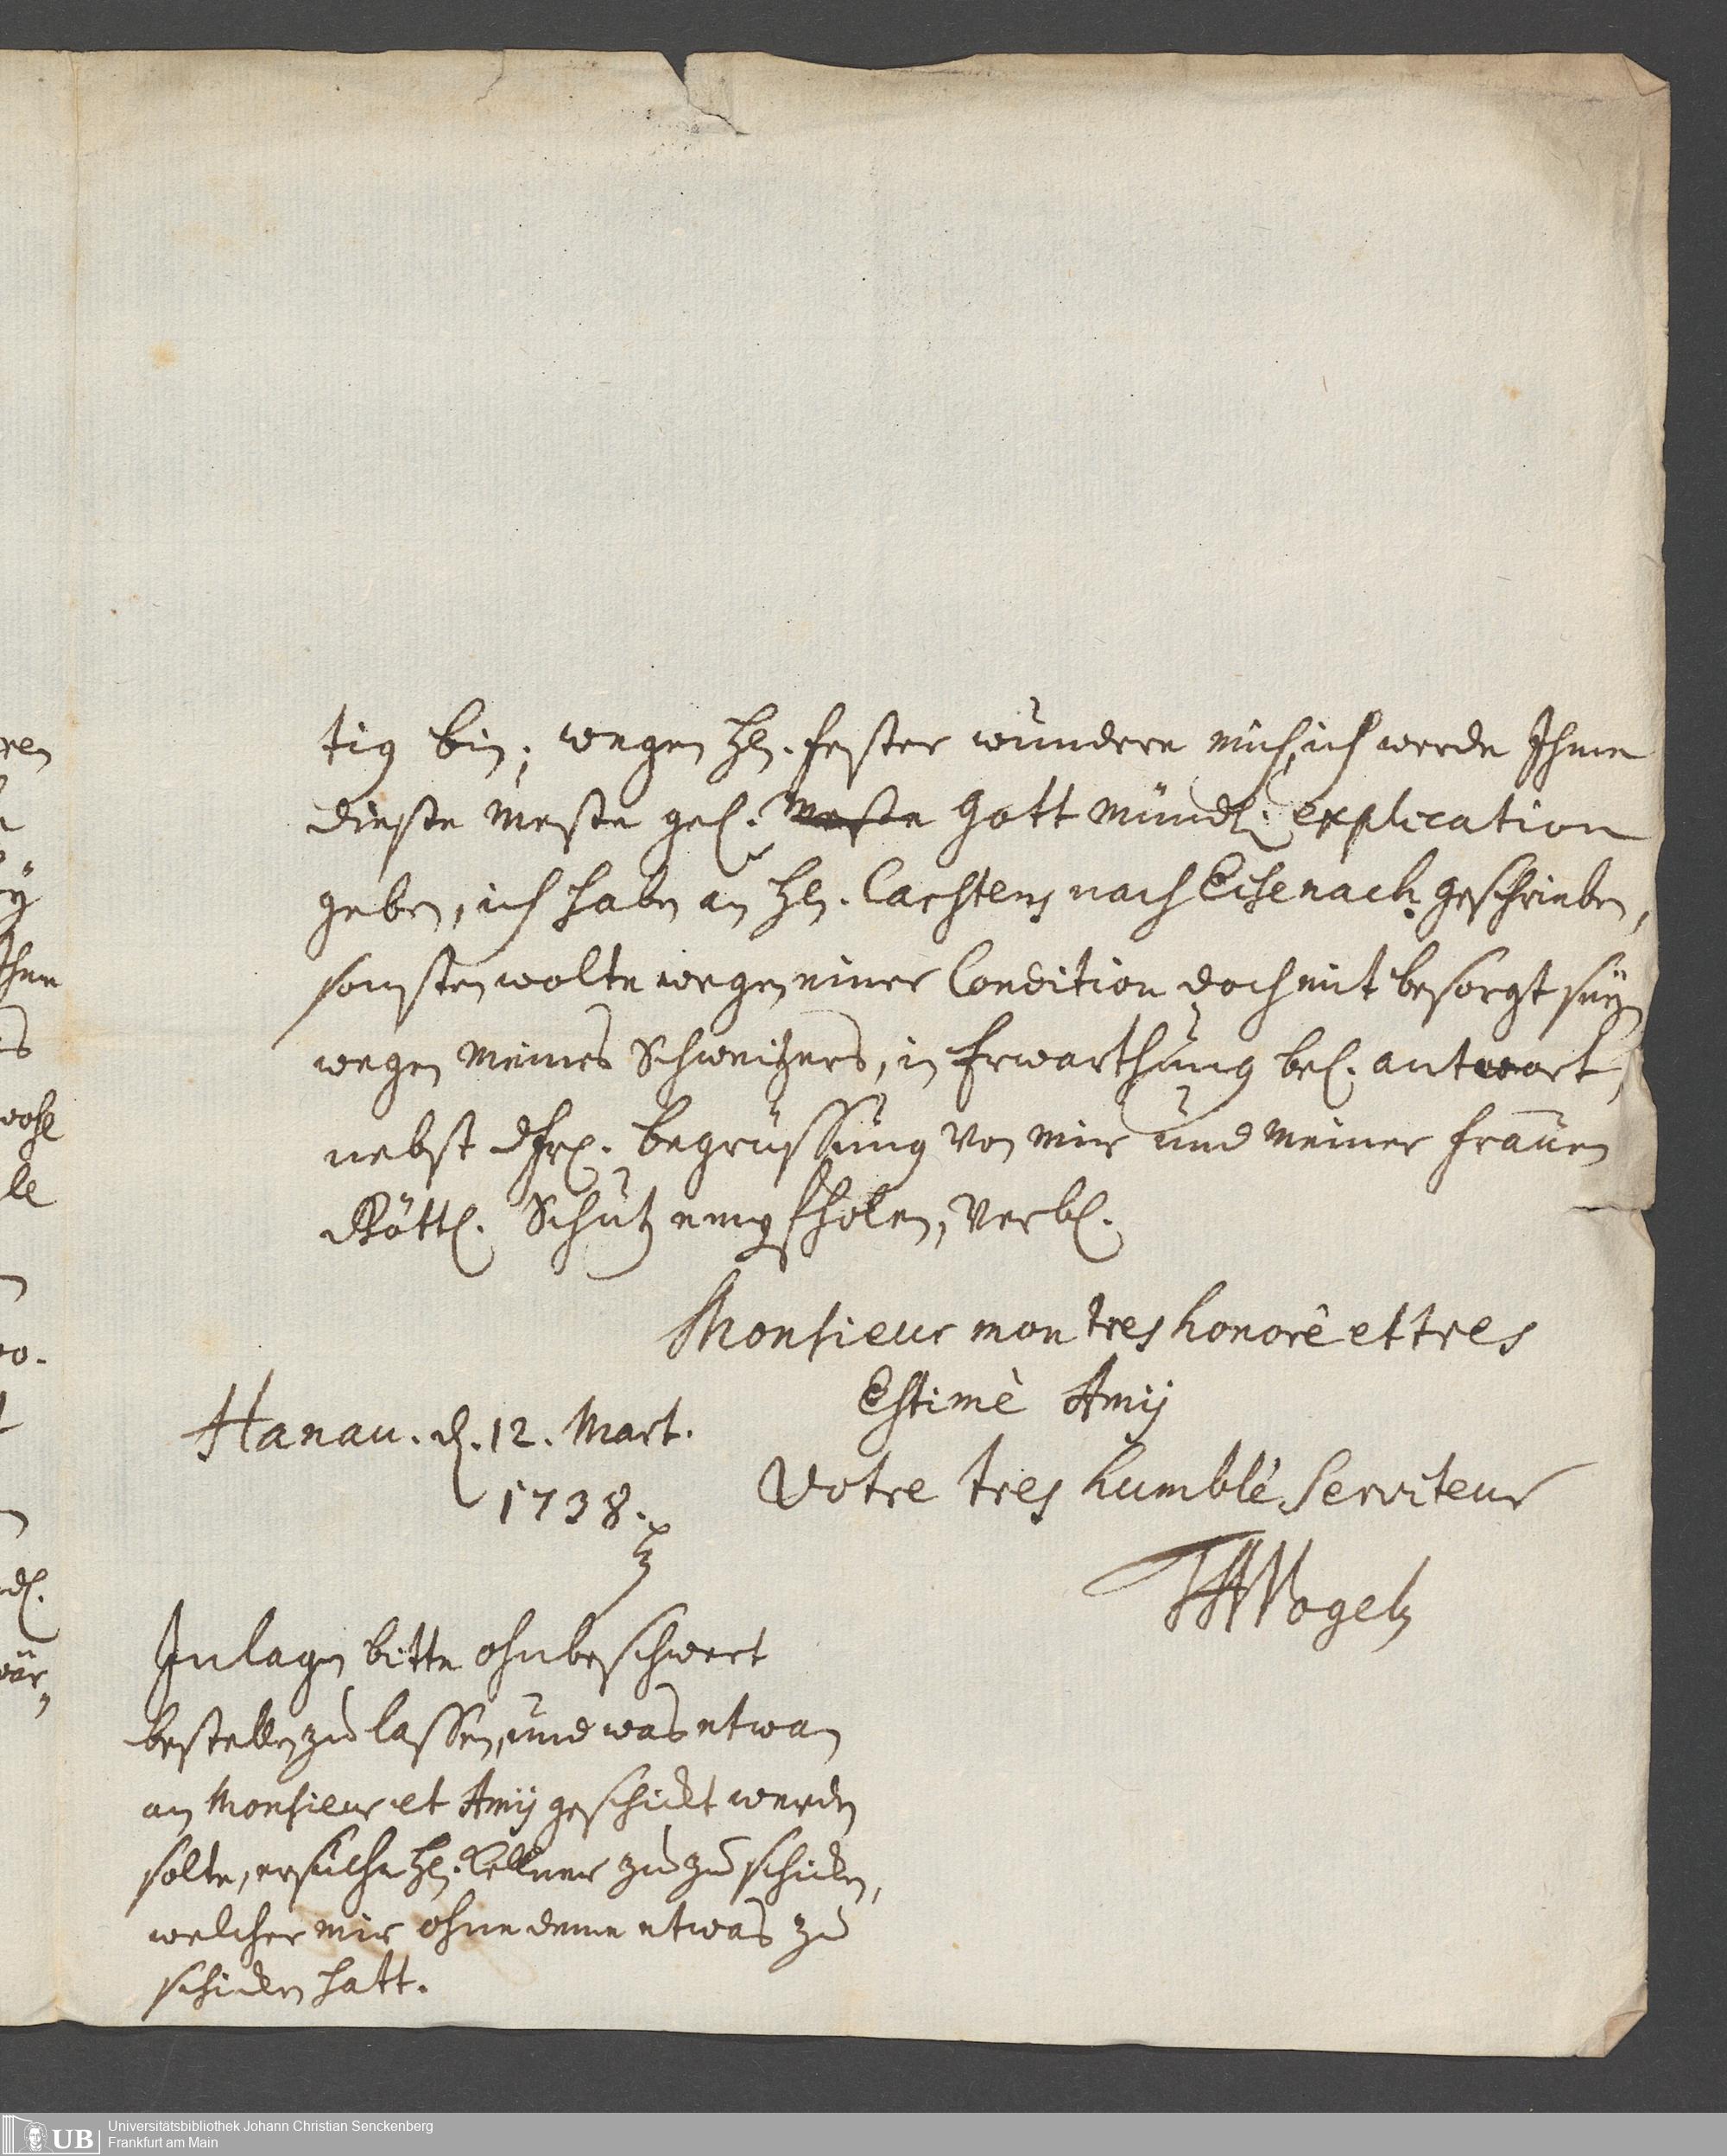 tig bin; wegen Hn. Fester wundere mich, ich werde Ihme
dieße Meße gel. Meße Gott mündl: explication
geben, ich habe an Hn. Carstens nach Eisenach geschrieben,
sonsten wolte wegen einer Condition doch mit besorgt seyn
wegen meines Schweitzers, in Erwarthung bel. antwort,
nebst dhrl. begrüssung von mir und meiner Frauen
Göttl. Schutz empfholen, Verbl.
Monsieur mon tres honorè et tres
Estimè Amÿ
Hanau. d. 12. Mart.
1738.
Votre tres humblè Serviteur
Vogel
Inlagen bitte ohnbeschwert
bestellen zu lassen, und was etwan
an Monsieur et Amÿ geschickt werden
solte, ersuche Hn. Kellner zu zu schicken,
welcher mir ohne deme etwas zu
schicken hatt.
ren
ÿ
Ihme
wohl
le
Universitätsbibliothek Johann Christian Senckenberg
Frankfurt am Main
UB